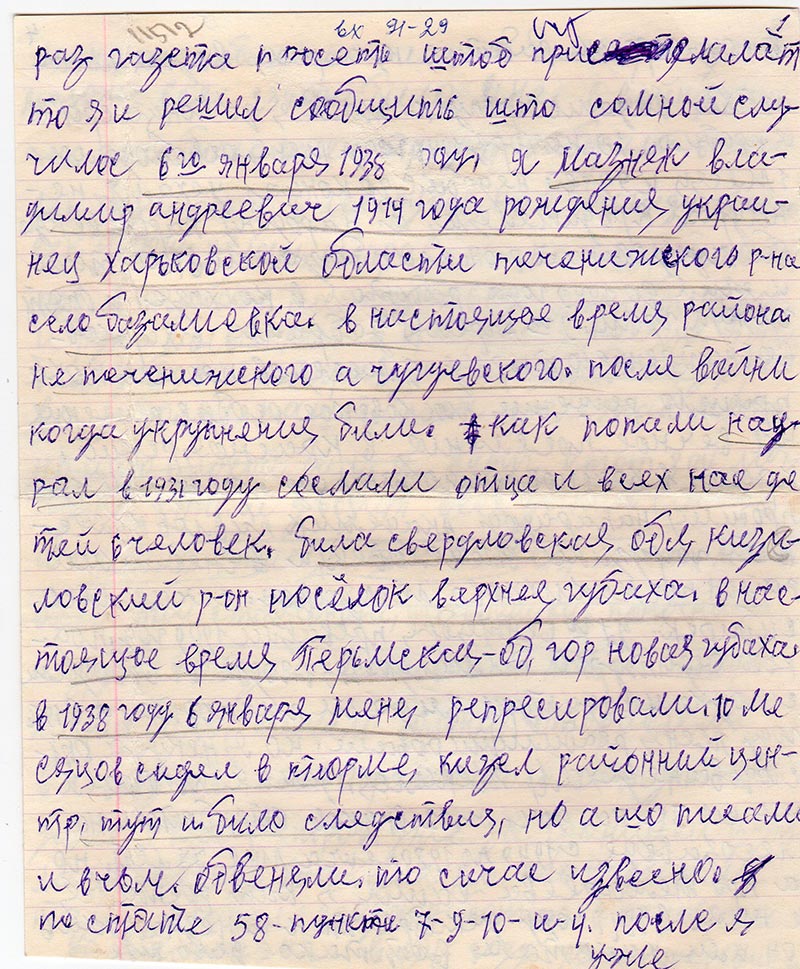 11512 вх 91-29 1
раз газета просеть штоб присилалат
то я и решил сообщить што сомной слу-
чилос 6го января 1938 году, я Мазнек вла-
димир андреевич 1914 года рождения, украи-
нец харьковской области печенижского р-на
село базалиевка. в настоящое время района
не печенижского а чугуевского. после войни
когда укрупнения били. как попали на у-
рал в 1931 году сослали отца и всех нас де
тей 6 человек. била свердловская обл, кизе-
ловский р-он посёлок верхнея губаха. в нас-
тоящое время Перьмская-об, гор новая губаха.
в 1938 году 6 января меня репресировали. 10 ме
сяцов сидел в тюрме, кизел районний цен-
тр, тут и било следствия, но а шо писали
и вчом. обвеняли. то сичас извесно.
по стате 58-пункти 7-9-10-и-11. после я
уже